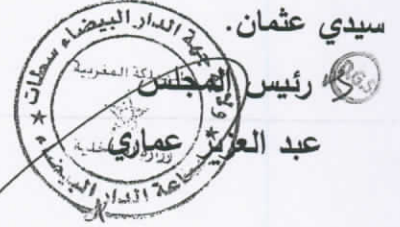 سيدي عثمان.
رئيس المجلس
عبد العزيز عماري
ولاية جهة الدار البيضاء سطات
المملكة المغربية
وزارة الداخلية
جماعة الدار البيضاء
D.G.S